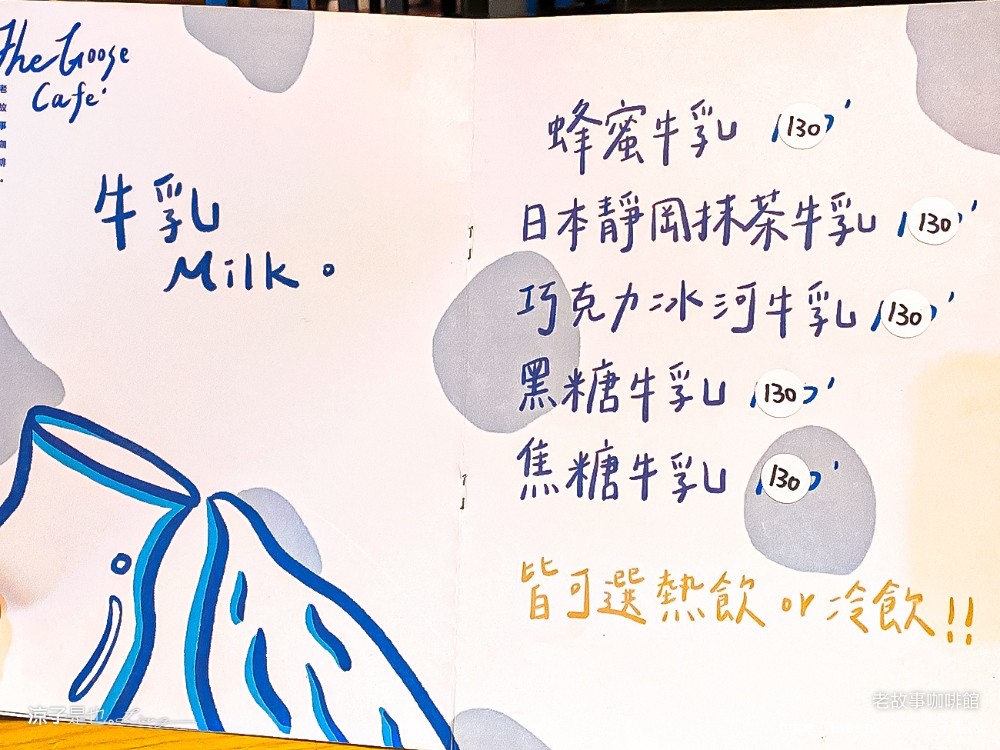 The Goose
Cafe'
老故事咖啡.
牛乳
Milk。
蜂蜜牛乳 130
日本靜岡抹茶牛乳 130
巧克力冰河牛乳 130
黑糖牛乳 130
焦糖牛乳 130
皆可選熱飲 or 冷飲!!
涼子是也
老故事咖啡館